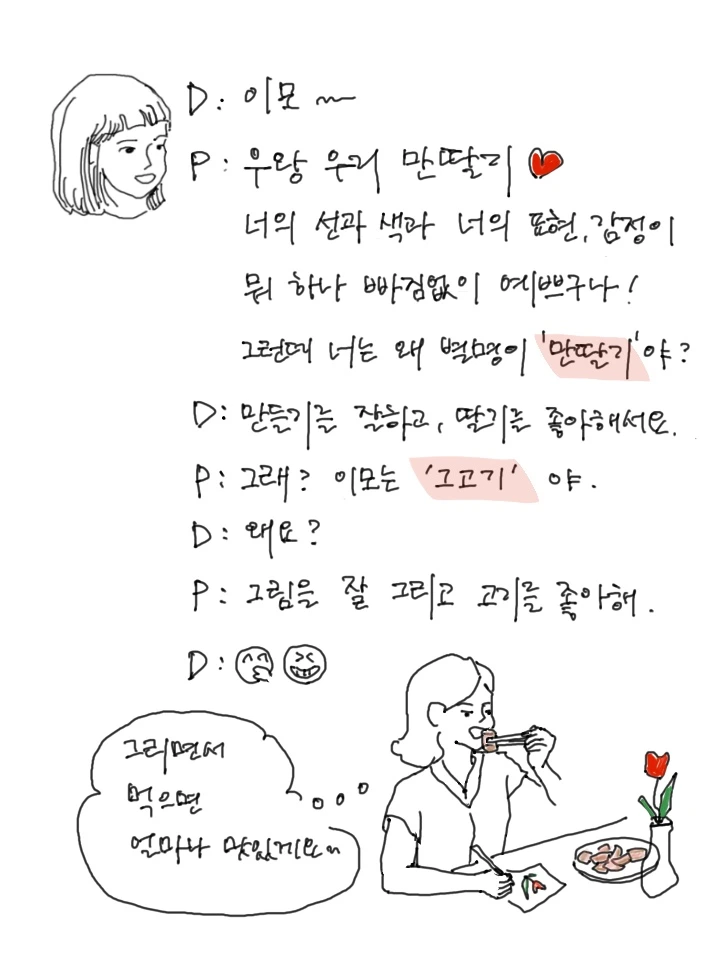 D: 이모~
P: 우왕 우리 만딸기
너의 선과 색과 너의 표현, 감정이
뭐 하나 빠짐없이 예쁘구나!
그런데 너는 왜 별명이 '만딸기'야?
D: 만들기를 잘하고, 딸기를 좋아해서요.
P: 그래? 이모는 '그고기' 야.
D: 왜요?
P: 그림을 잘 그리고 고기를 좋아해.
D:
그리면서
먹으면
얼마나 맛있게요~